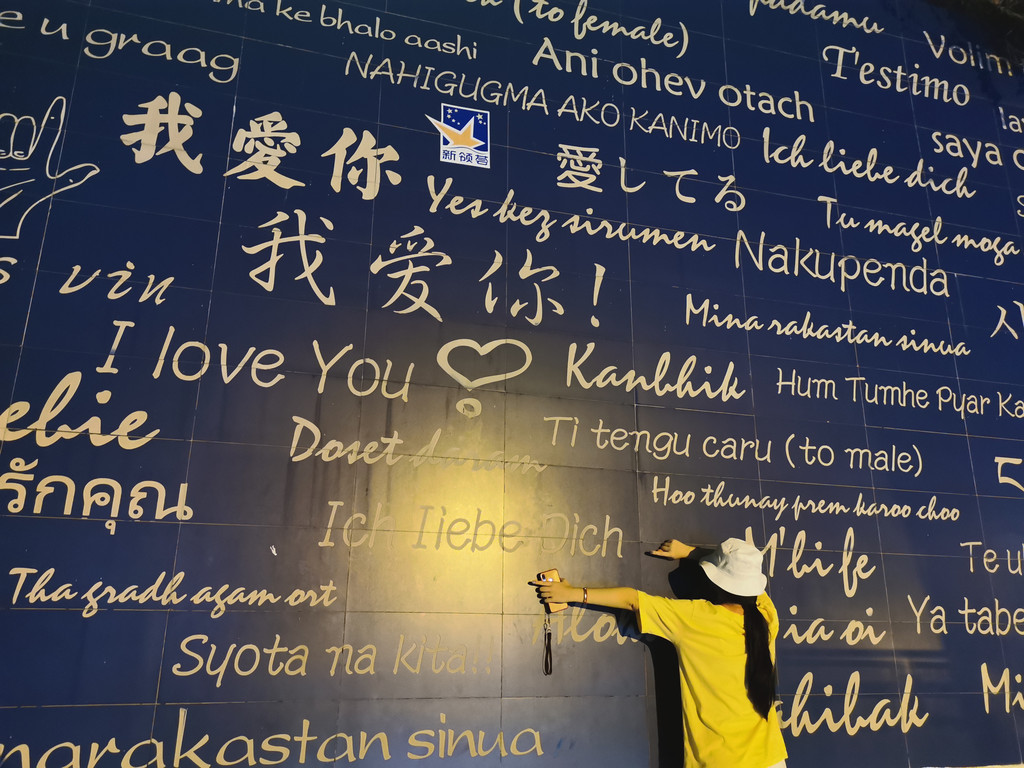 ma ke bhalo aashi
(to female)
padamu
e u graag
NAHIGUGMA AKO KANIMO
Ani ohev otach
T'estimo
Volim
我愛你
新领荟
愛してる
Ich liebe dich
saya
Yes kez sirumen
Tu magel moga
我爱你!
Nakupenda
vin
Mina rakastan sinua
사
I love You
Kanbhik
Hum Tumhe Pyar Ka
ebie
Doset daram
Ti tengu caru (to male)
รักคุณ
Hoo thunay prem karoo choo
Ich Iiebe Dich
M'bi fe
Te u
Tha gradh agam ort
ia oi
Ya tabe
Syota na kita!!
hibak
Mi
narakastan sinua